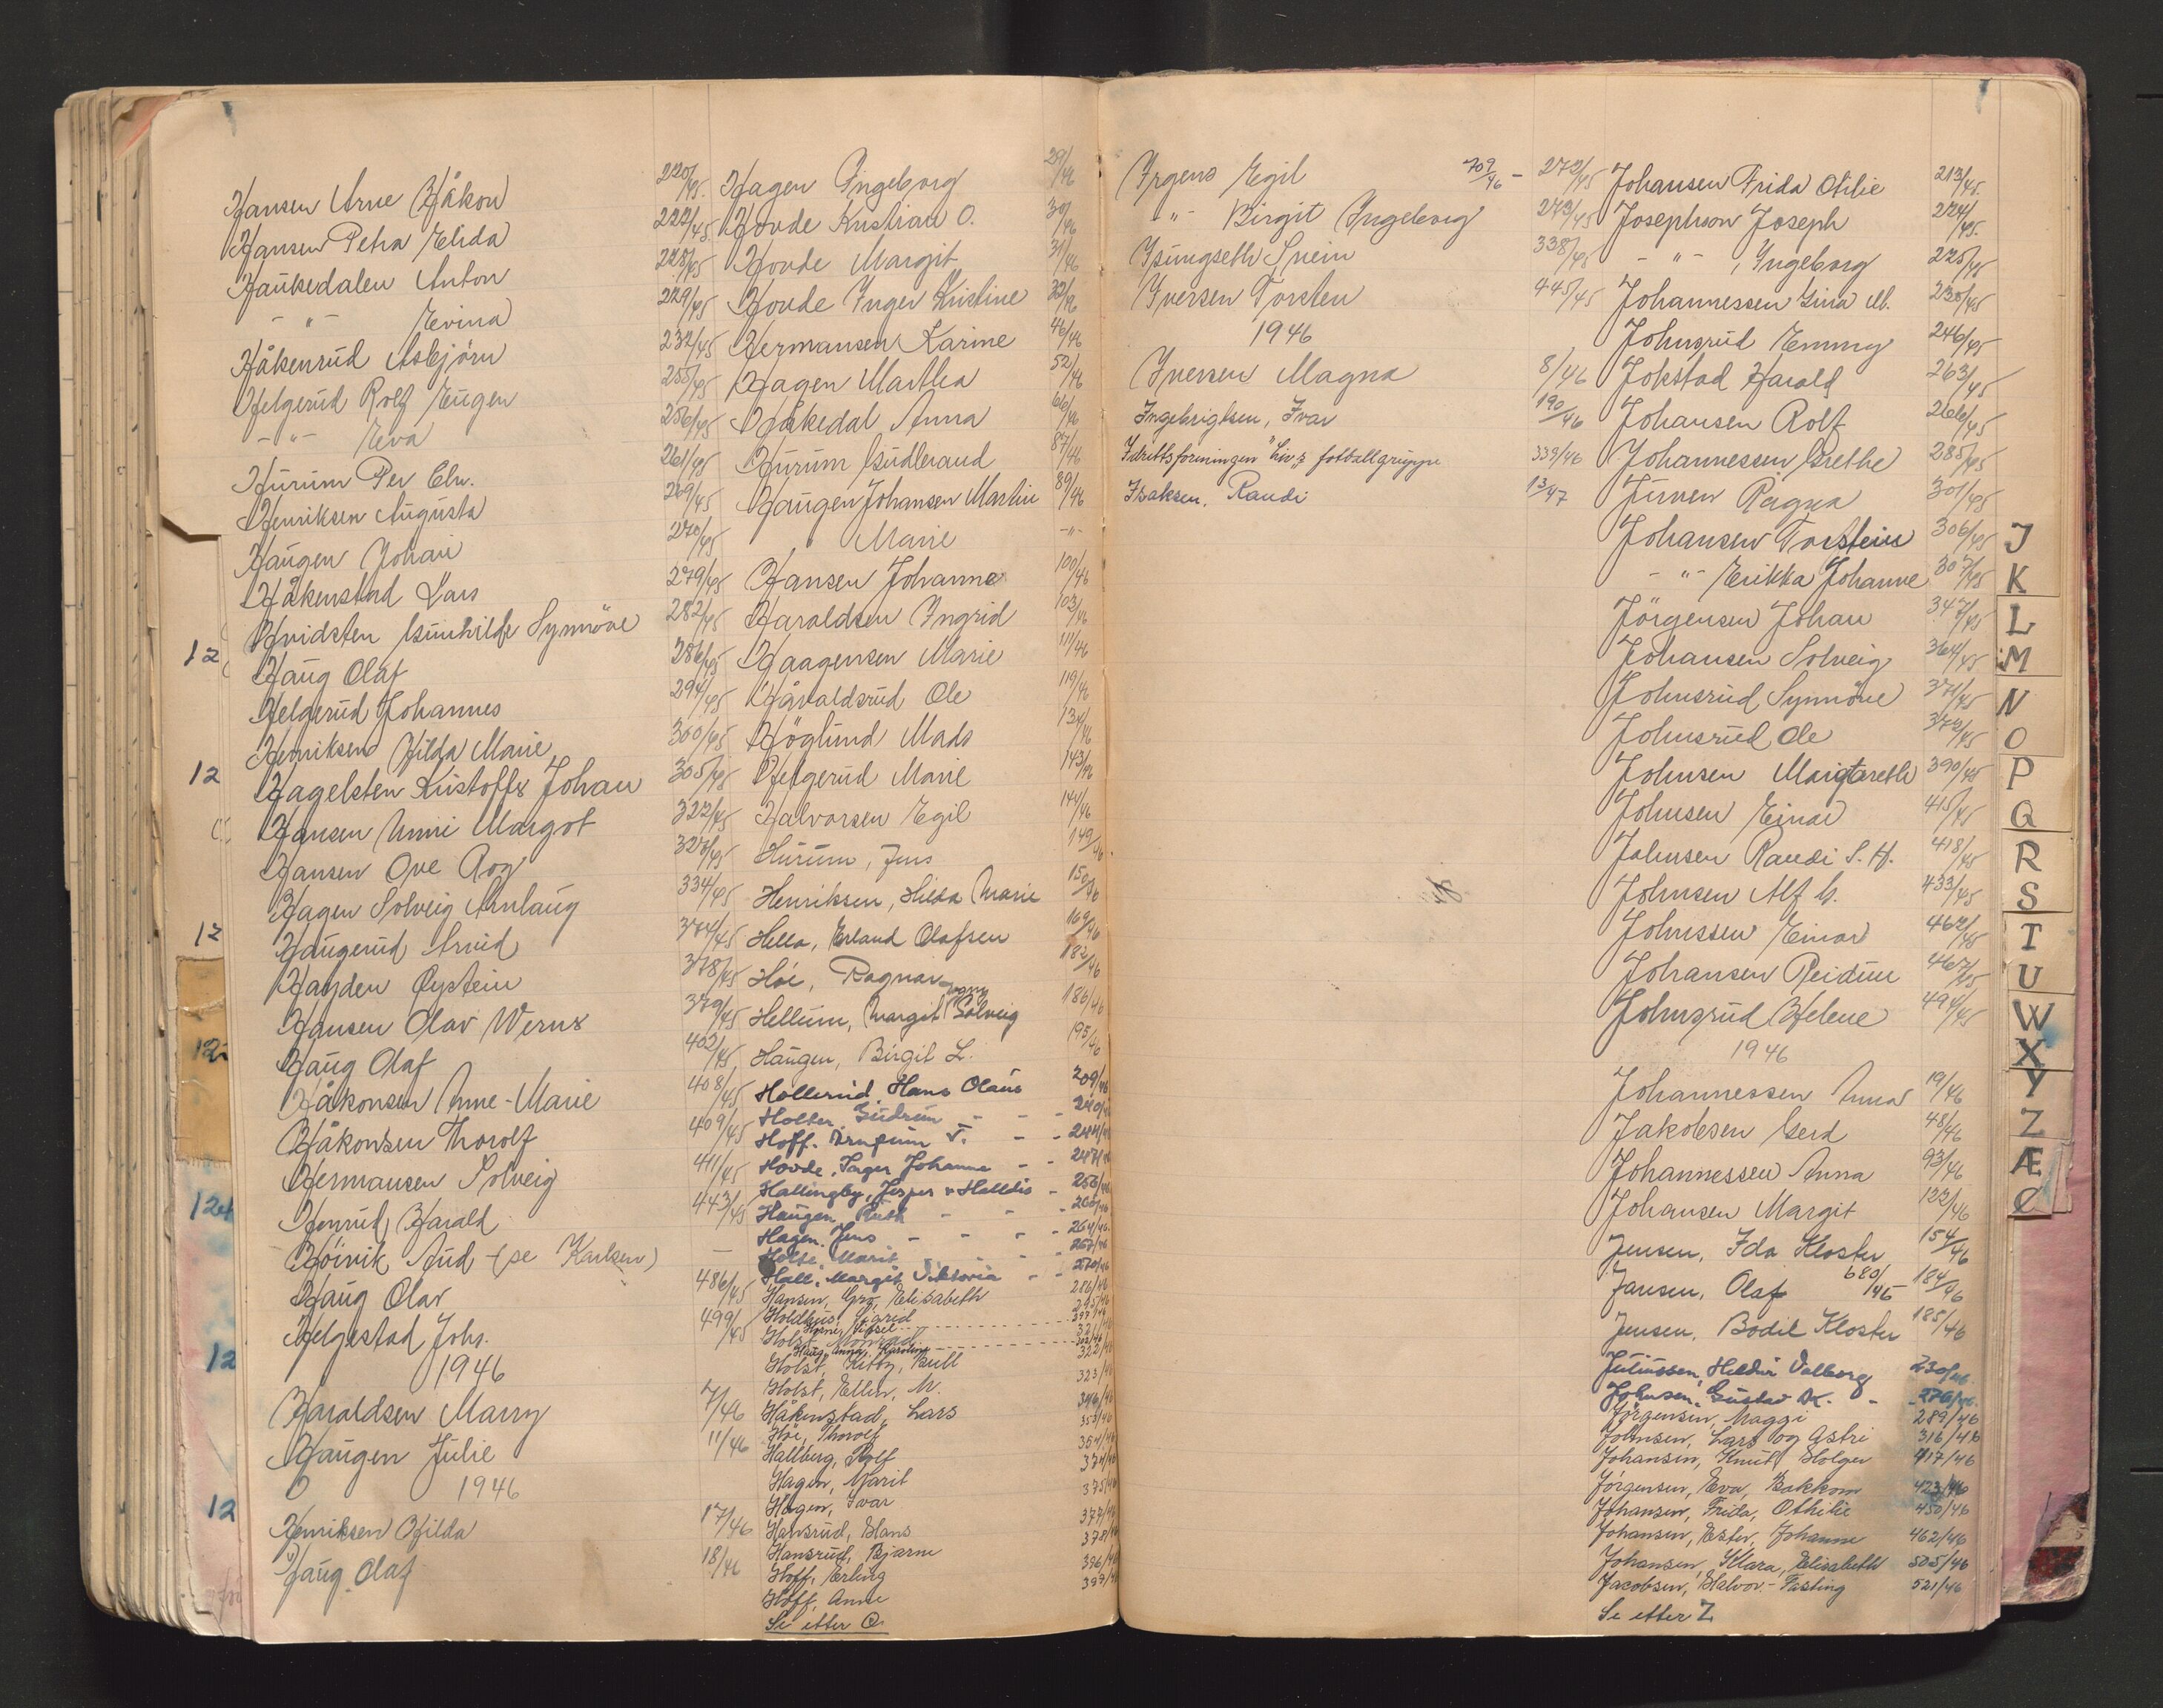 Hansen Arne Håkon 220/45
Hansen Petra Elida 222/45
Haukedalen Anton 228/45
- " - Evina 229/45
Håkenrud Asbjørn 232/45
Helgerud Rolf Eugen 255/45
- " - Eva 256/45
Hurum Per Chr. 261/45
Henriksen Augusta 269/45
Haugen Johan 270/45
Håkenstad Lars 279/45
Hvidsten Gunhild Synnöve 282/45
Haug Olaf 286/45
Helgerud Johannes 294/45
Henriksen Hilda Marie 300/45
Hagelsten Kristoffer Johan 305/45
Hansen Unni Margot 322/45
Hansen Ove Roy
Hagen Solveig Arnlaug 334/45
Haugerud Arvid 374/45
Hayden Øystein 378/45
Hansen Olav Werner 379/45
Haug Olaf 402/45
Håkonsen Anne-Marie 408/45
Håkonsen Thorolf 409/45
Hermansen Solveig 411/45
Henrud Harald 443/45
Höivik Aud - (se Karlsen) -
Haug Olav 486/45
Helgestad Johs. 499/45
1946
Haraldsen Marry 7/46
Haugen Julie 11/46
1946
Henriksen Hilda 17/46
Haug Olaf 18/46
Hagen Ingeborg 29/46
Hovde Kristian O. 30/46
Hovde Margit 31/46
Hovde Inger Kristine 32/46
Hermansen Karine 46/46
Hagen Martha 52/46
Håkedal Anna 66/46
Hurum Gudbrand 87/46
Haugen Johansen Martin 89/46
Marie - " -
Hansen Johanne 100/46
Haraldsen Ingrid 103/46
Haagensen Marie 111/46
Håvaldsrud Ole 119/46
Höglund Mads 134/46
Helgerud Marie 143/46
Halvorsen Egil 144/46
Hurum, Jens 149/46
Henriksen, Hilda Marie 150/46
Hella, Erland Olafsen 169/46
Hoe, Ragnar 182/46
Hellum, Margit Solveig 186/46
Haugen, Birgit L. 195/46
Hollerud, Hans Olaus 209/46
Holter, Gudrun - - - 240/46
Hoff. T. - - 244/46
Hovde, Inger Johanne - - 247/46
Hallingby, Jesper & Halldis - 256/46
Haugen, Ruth - - - 260/46
Hagen, Jens - - - - 264/46
Holte, Marit - - 267/46
Hall, Margit Viktoria - - 270/46
Hansen, Gro, Elisabeth 286/46
Sigrid 295/46
Sissel 297/46
Holst, Monrad 321/46
Haug, Anna, Karoline
Holst, Kitty, Bull 322/46
Holst, Ellen, M. 323/46
Håkenstad, Lars 346/46
Hoe, Thorolf 353/46
Hallberg, Rolf 354/46
Hagen, Marit 374/46
Hagen, Ivar 375/46
Hansrud, Hans 377/46
Hansrud, Bjarne 378/46
Hoff, Erling 396/46
Hoff, Anne 397/46
Se etter Ø
Irgens Egil 709/46 - 272/45
- " - Birgit Ingeborg 273/45
Isungseth Svein 338/45
Iversen Torsten 445/45
1946
Iversen Magna 8/46
Ingebrigtsen, Ivar 190/46
Idrettsforeningen "Liv"s fotballgruppe 339/46
Isaksen, Randi 13/47
Johansen Frida Otilie 213/45
Josephson Joseph 224/45
- " - Ingeborg 225/45
Johannessen Gina M. 230/45
Johnsrud Emmy 246/45
Jokstad Harald 263/45
Johansen Rolf 266/45
Johannessen Grethe 285/45
Juven Ragna 301/45
Johansen Torstein 306/45
- " - Erikka Johanne 307/45
Jörgensen Johan 347/45
Johansen Solveig 364/45
Johnsrud Synnöve 371/45
Johnsrud Ole 372/45
Johnsen Margareth 390/45
Johnsen Einar 415/45
Johnsen Randi S. H. 418/45
Johnsen Alf G. 433/45
Johnssen Einar 462/45
Johansen Reidun 467/45
Johnsrud Helene 494/45
1946
Johannessen Anna 19/46
Jakobsen Gerd 48/46
Johannessen Anna 93/46
Johansen Margit 123/46
Jensen, Ida Kloster 154/46
Jansen, Olaf 680/46 184/46
Jensen, Bodil Kloster 185/46
Juliussen, Heldur Valborg 230/46
Johnsen, Gustav K. - 276/46
Jörgensen, Maggi 289/46
Johnsen, Lars og Astri 316/46
Johansen, Knut, Holger 417/46
Jørgensen, Eva, Bakkom 423/46
Johansen, Frida, Othilie 450/46
Johansen, Ester, Johanne 462/46
Johansen, Klara, Elisabeth 505/46
Jacobsen, Halvor.- Fasting 521/46
Se etter Z
J
K
L
M
N
O
P
Q
R
S
T
U
W
X
Y
Z
Æ
Ø
12
12
12
12
124
12
12